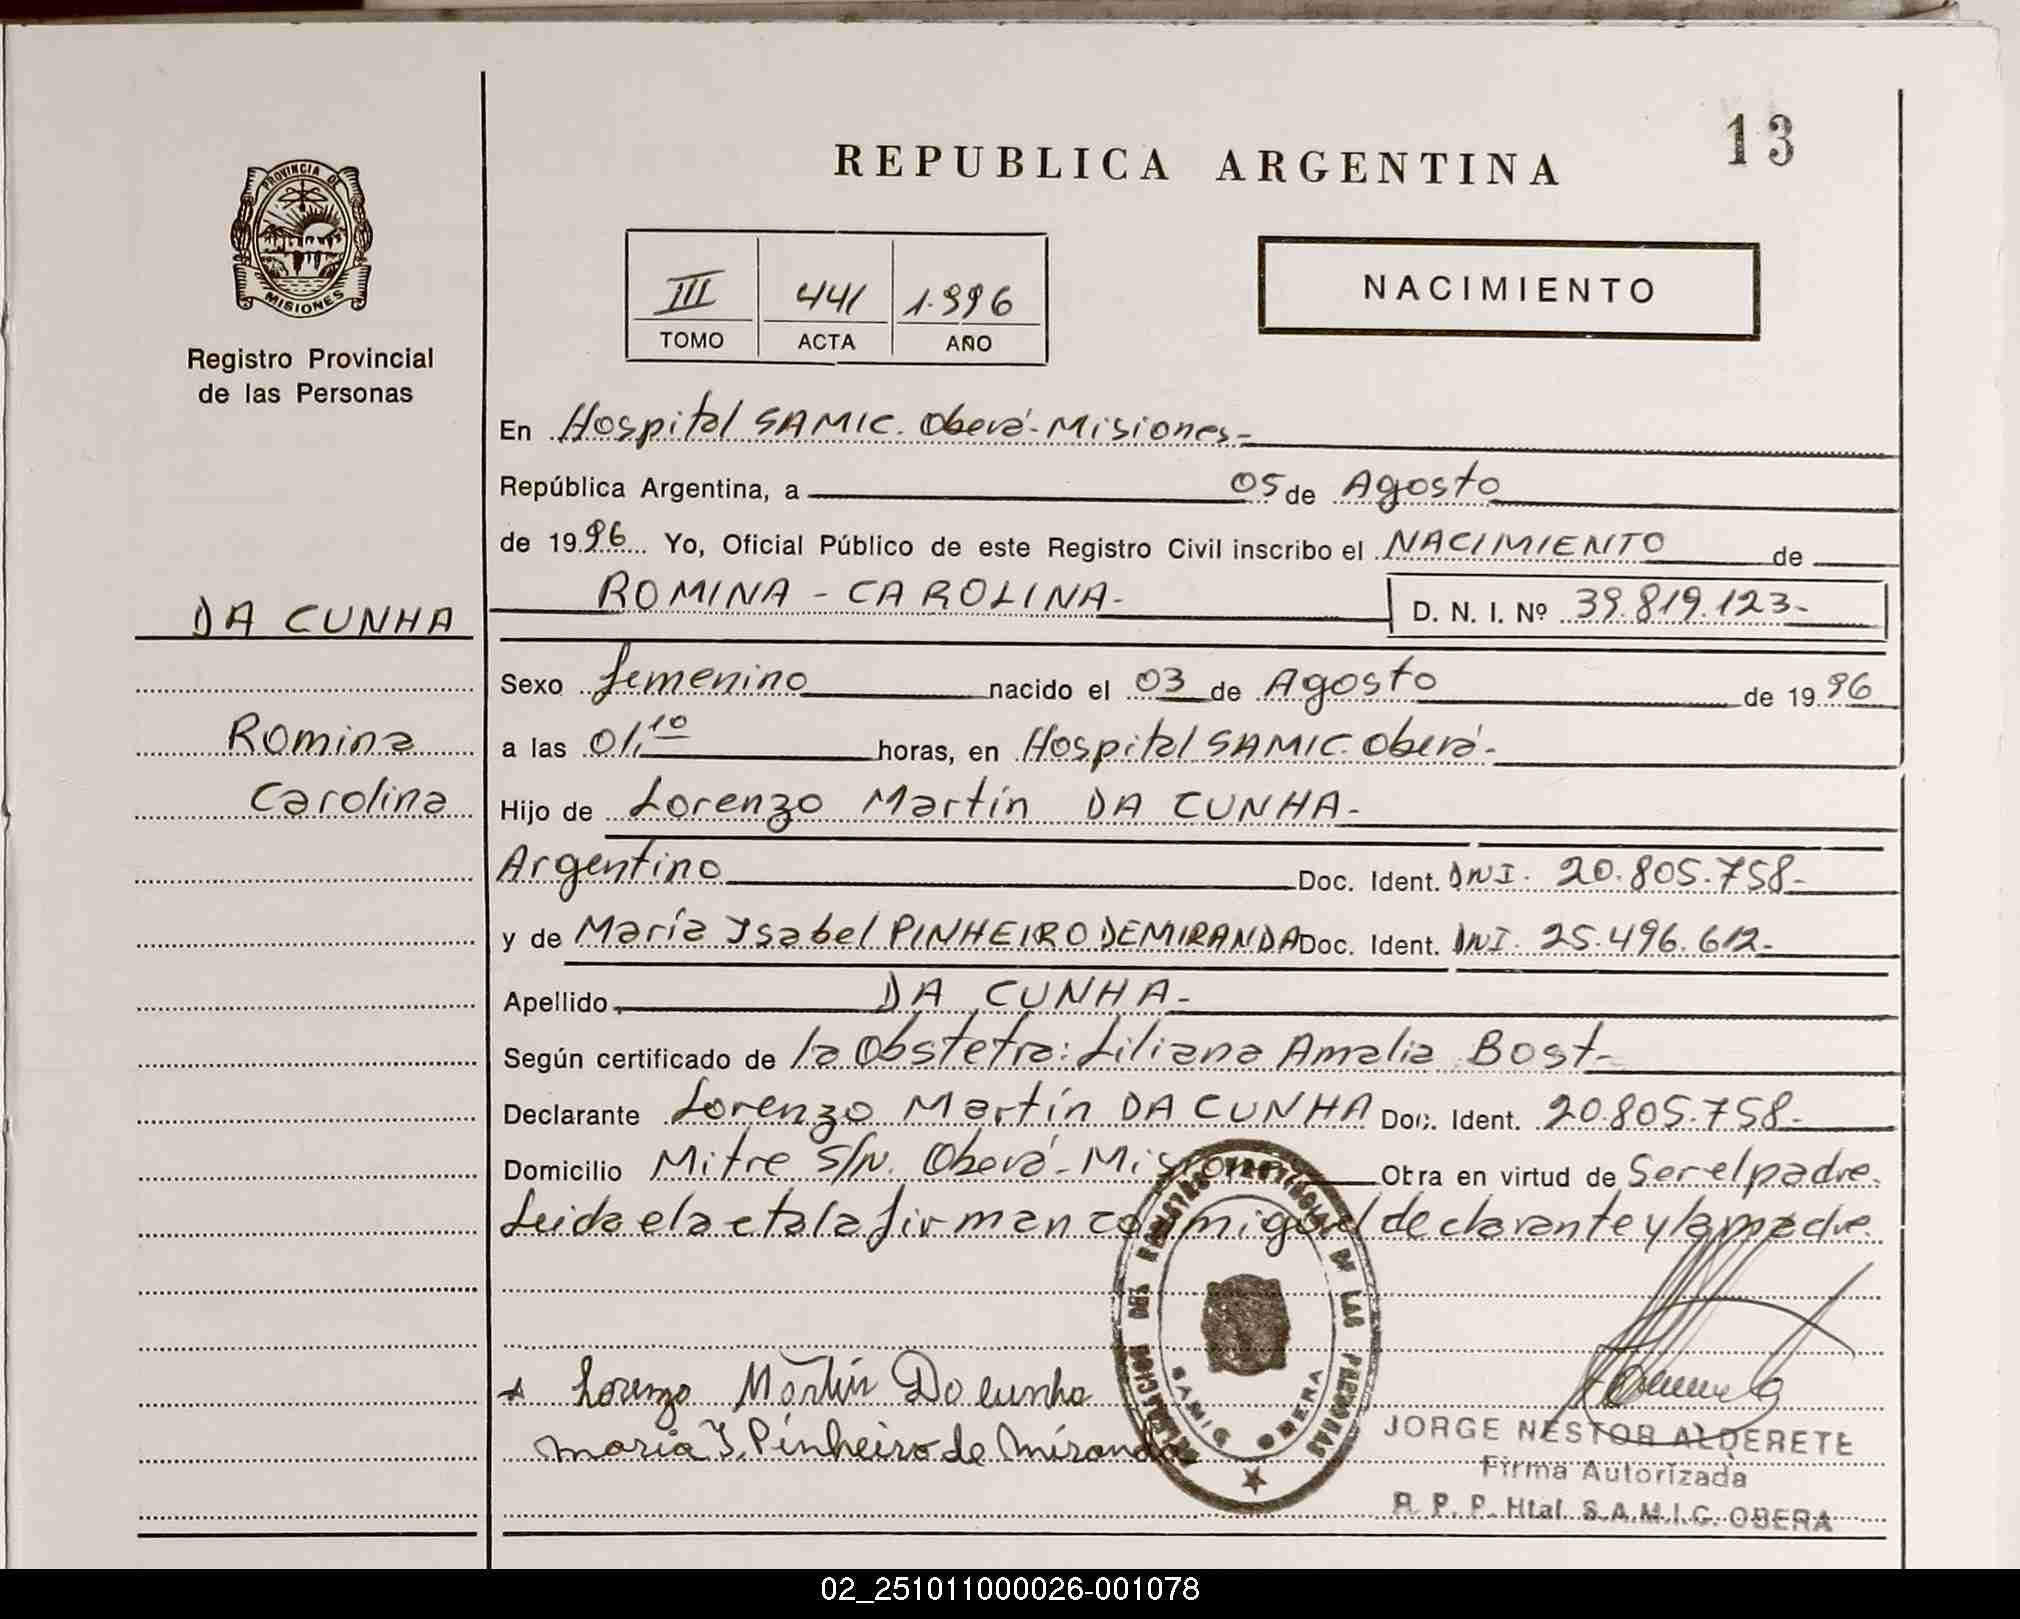 13
REPUBLICA ARGENTINA
PROVINCIA DE
MISIONES
Registro Provincial
de las Personas
III 441 1.996
TOMO ACTA AÑO
NACIMIENTO
En Hospital SAMIC. Oberá-Misiones-
República Argentina, a 05 de Agosto
de 1996 Yo, Oficial Público de este Registro Civil inscribo el NACIMIENTO de
ROMINA - CAROLINA- D. N. I. Nº 39.819.123-
DA CUNHA
Romina
Carolina
Sexo femenino nacido el 03 de Agosto de 1996
a las 01,10 horas, en Hospital SAMIC. Oberá-
Hijo de Lorenzo Martín DA CUNHA-
Argentino Doc. Ident. DNI. 20.805.758-
y de María Isabel PINHEIRO DE MIRANDA Doc. Ident. DNI. 25.496.612-
Apellido DA CUNHA-
Según certificado de la Obstetra: Liliana Amalia Bost-
Declarante Lorenzo Martín DA CUNHA Doc. Ident. 20.805.758-
Domicilio Mitre S/N. Oberá-Misiones Obra en virtud de Ser el padre.
Leida el acta la firman conmigo el declarante y la madre.
DELEGACION DEL REGISTRO PROVINCIAL DE LAS PERSONAS
SAMIC OBERA
Lorenzo Martín Da cunha
Maria I. Pinheiro de Miranda
JORGE NESTOR ALDERETE
Firma Autorizada
R. P. P. Htal. S.A.M.I.C. OBERA
02_251011000026-001078